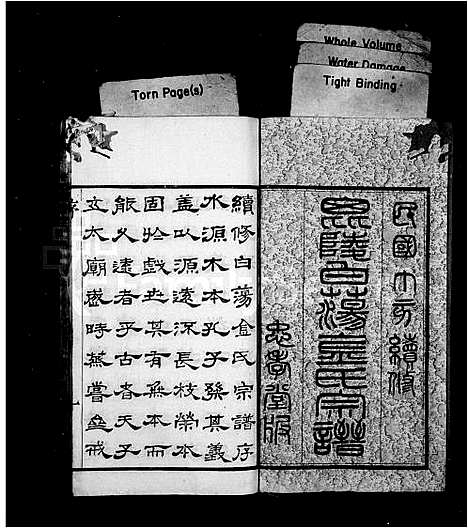 Whole Volume
Water Damage
Tight Binding
Torn Page(s)
民國十 續修
毘陵白蕩金氏宗譜
忠孝堂版
續修白蕩金氏宗譜序
水源木本孔子發其義
蓋以源遠流長枝榮本
固於戲世其有無本而
能久遠者乎古者天子
立太廟歲時蒸嘗垂戒